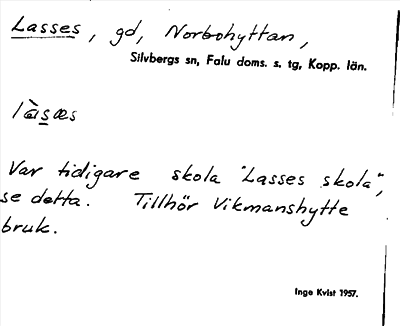 Lasses, gd, Norbohyttan,
Silvbergs sn, Falu doms. s. tg, Kopp. län.
làsæs
Var tidigare skola "Lasses skola",
se detta. Tillhör Vikmanshytte
bruk.
Inge Kvist 1957.